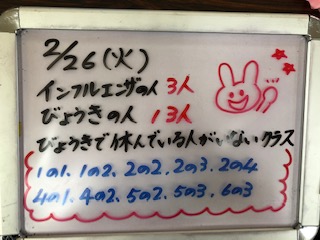 2/26(火)
インフルエンザの人 3人
びょうきの人 13人
びょうきで休んでいる人がいないクラス
1の1、1の2、2の2、2の3、2の4
4の1、4の2、5の2、5の3、6の3